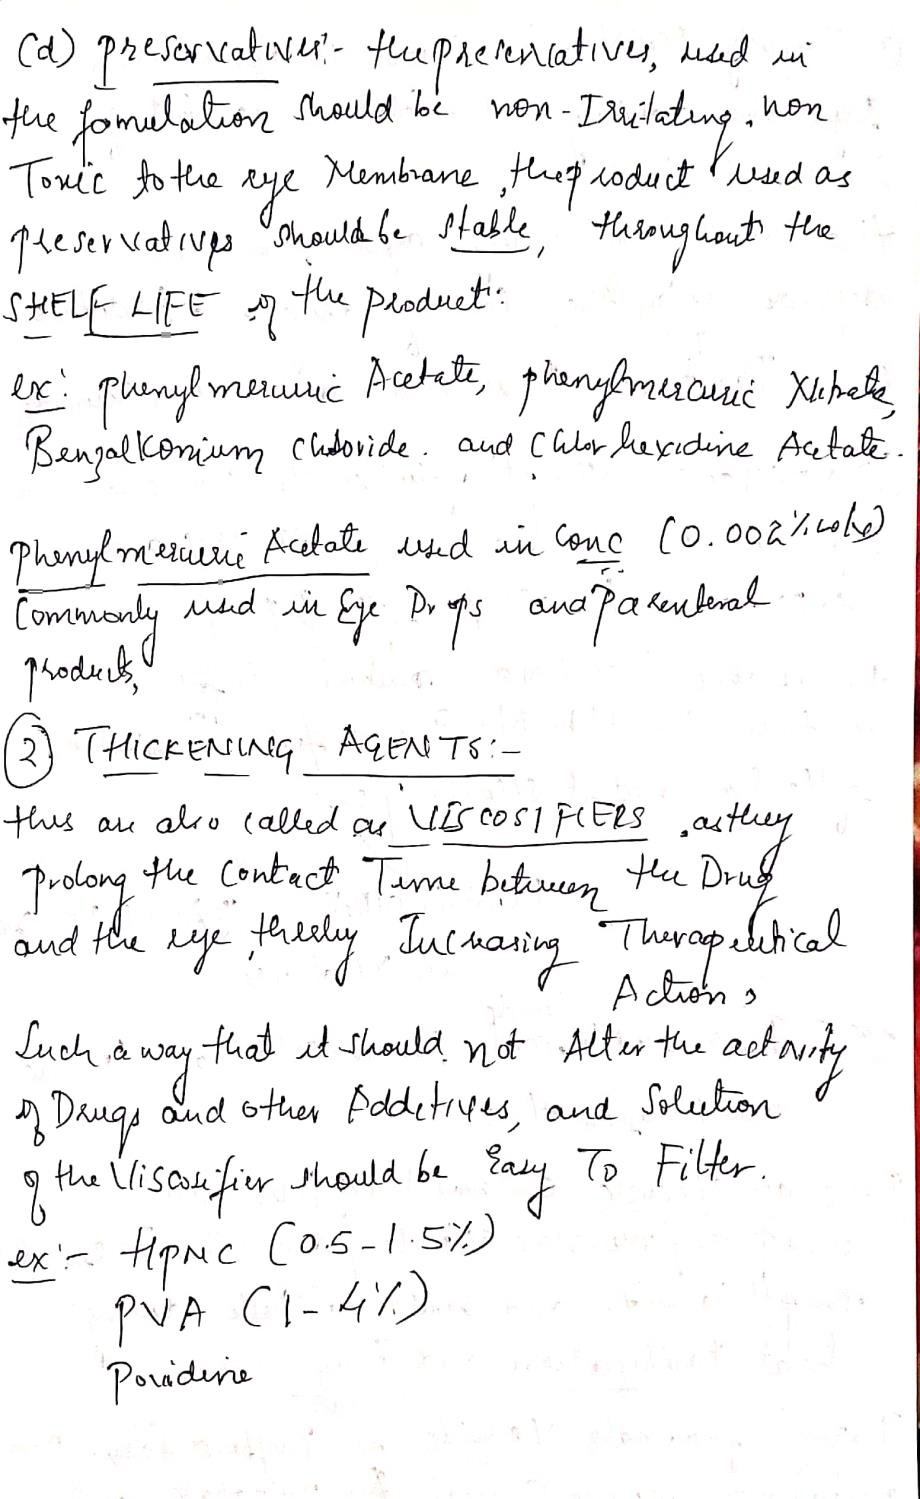 (d) preservatives:- the preservatives, used in
the fomulation should be non-Irritating, non
Toxic to the eye Membrane, the product used as
preservatives should be stable, throughout the
SHELF LIFE of the product:
ex: phenylmercuric Acetate, phenylmercuric Nitrate,
Benzalkonium chloride. and Chlorhexidine Acetate.
phenylmercuric Acetate used in conc (0.002%
Commonly used in Eye Drops and Parenteral
products,
(2) THICKENING AGENTS:-
this are also called as VISCOSIFIERS, as they
prolong the contact Time between the Drug
and the eye, thereby Increasing Therapeutical
Action,
Such a way that it should not Alter the activity
of Drugs and other Additives, and Solution
of the Viscosifier should be Easy To Filter.
ex:- HPMC (0.5-1.5%)
PVA (1-4%)
Povidine